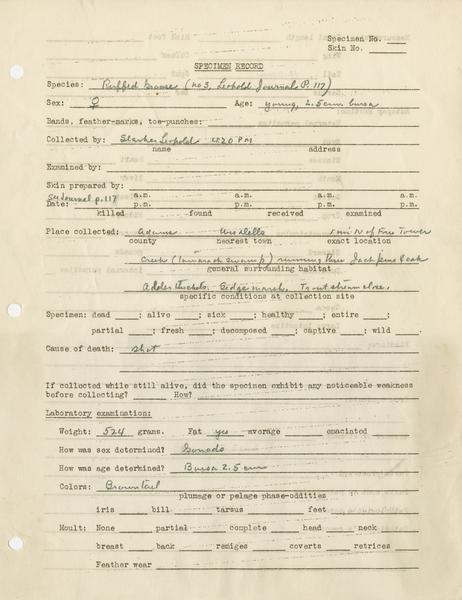 Specimen No. ___
Skin No. ___
SPECIMEN RECORD
Species: Ruffed Grouse (No 3, Leopold Journal P. 117)
Sex: ♀ Age: young, 2.5 cm bursa
Bands, feather-marks, toe-punches:
Collected by: Starker Leopold 4:20 PM
name address
Examined by:
Skin prepared by:
See Journal p. 117 a.m. a.m. a.m. a.m.
Date: p.m. p.m. p.m. p.m.
killed found received examined
Place collected: Adams 1 mi N of Fire Tower
county nearest town exact location
Creek (Tamarack Swamp) running thru Jack pine & oak
general surrounding habitat
Alder thickets. Sedge marsh. Trout stream close.
specific conditions at collection site
Specimen: dead ___ alive ___; sick ___; healthy ___; entire ___;
partial ___; fresh ___; decomposed ___; captive ___; wild ___.
Cause of death: shot
If collected while still alive, did the specimen exhibit any noticeable weakness
before collecting? ___ How? ___
Laboratory examination:
Weight: 524 grams. Fat yes average ___ emaciated ___
How was sex determined? Gonads
How was age determined? Bursa 2.5 cm
Colors: Brown tail
plumage or pelage phase-oddities
iris ___ bill ___ tarsus ___ feet ___
Moult: None ___ partial ___ complete ___ head ___ neck ___
breast ___ back ___ remiges ___ coverts ___ retrices ___
Feather wear ___